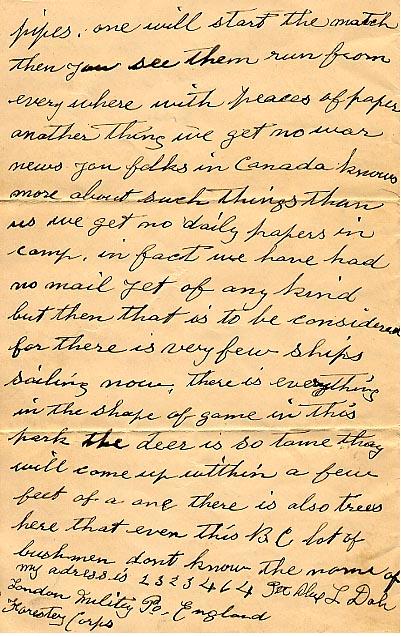 pipes. one will start the match
then you see them run from
everywhere with peaces of paper
another thing we get no war
news you folks in Canada knows
more about such things than
us we get no daily papers in
camp. in fact we have had
no mail yet of any kind
but then that is to be considered
for there is very few ships
sailing now, there is everything
in the shape of game in this
park the deer is so tame thay
will come up within a few
feet of a one there is also trees
here that even this B C lot of
bushmen dont know the name of
my adress is 2323464 Alex L
London Military Po. England
Forestey Corps